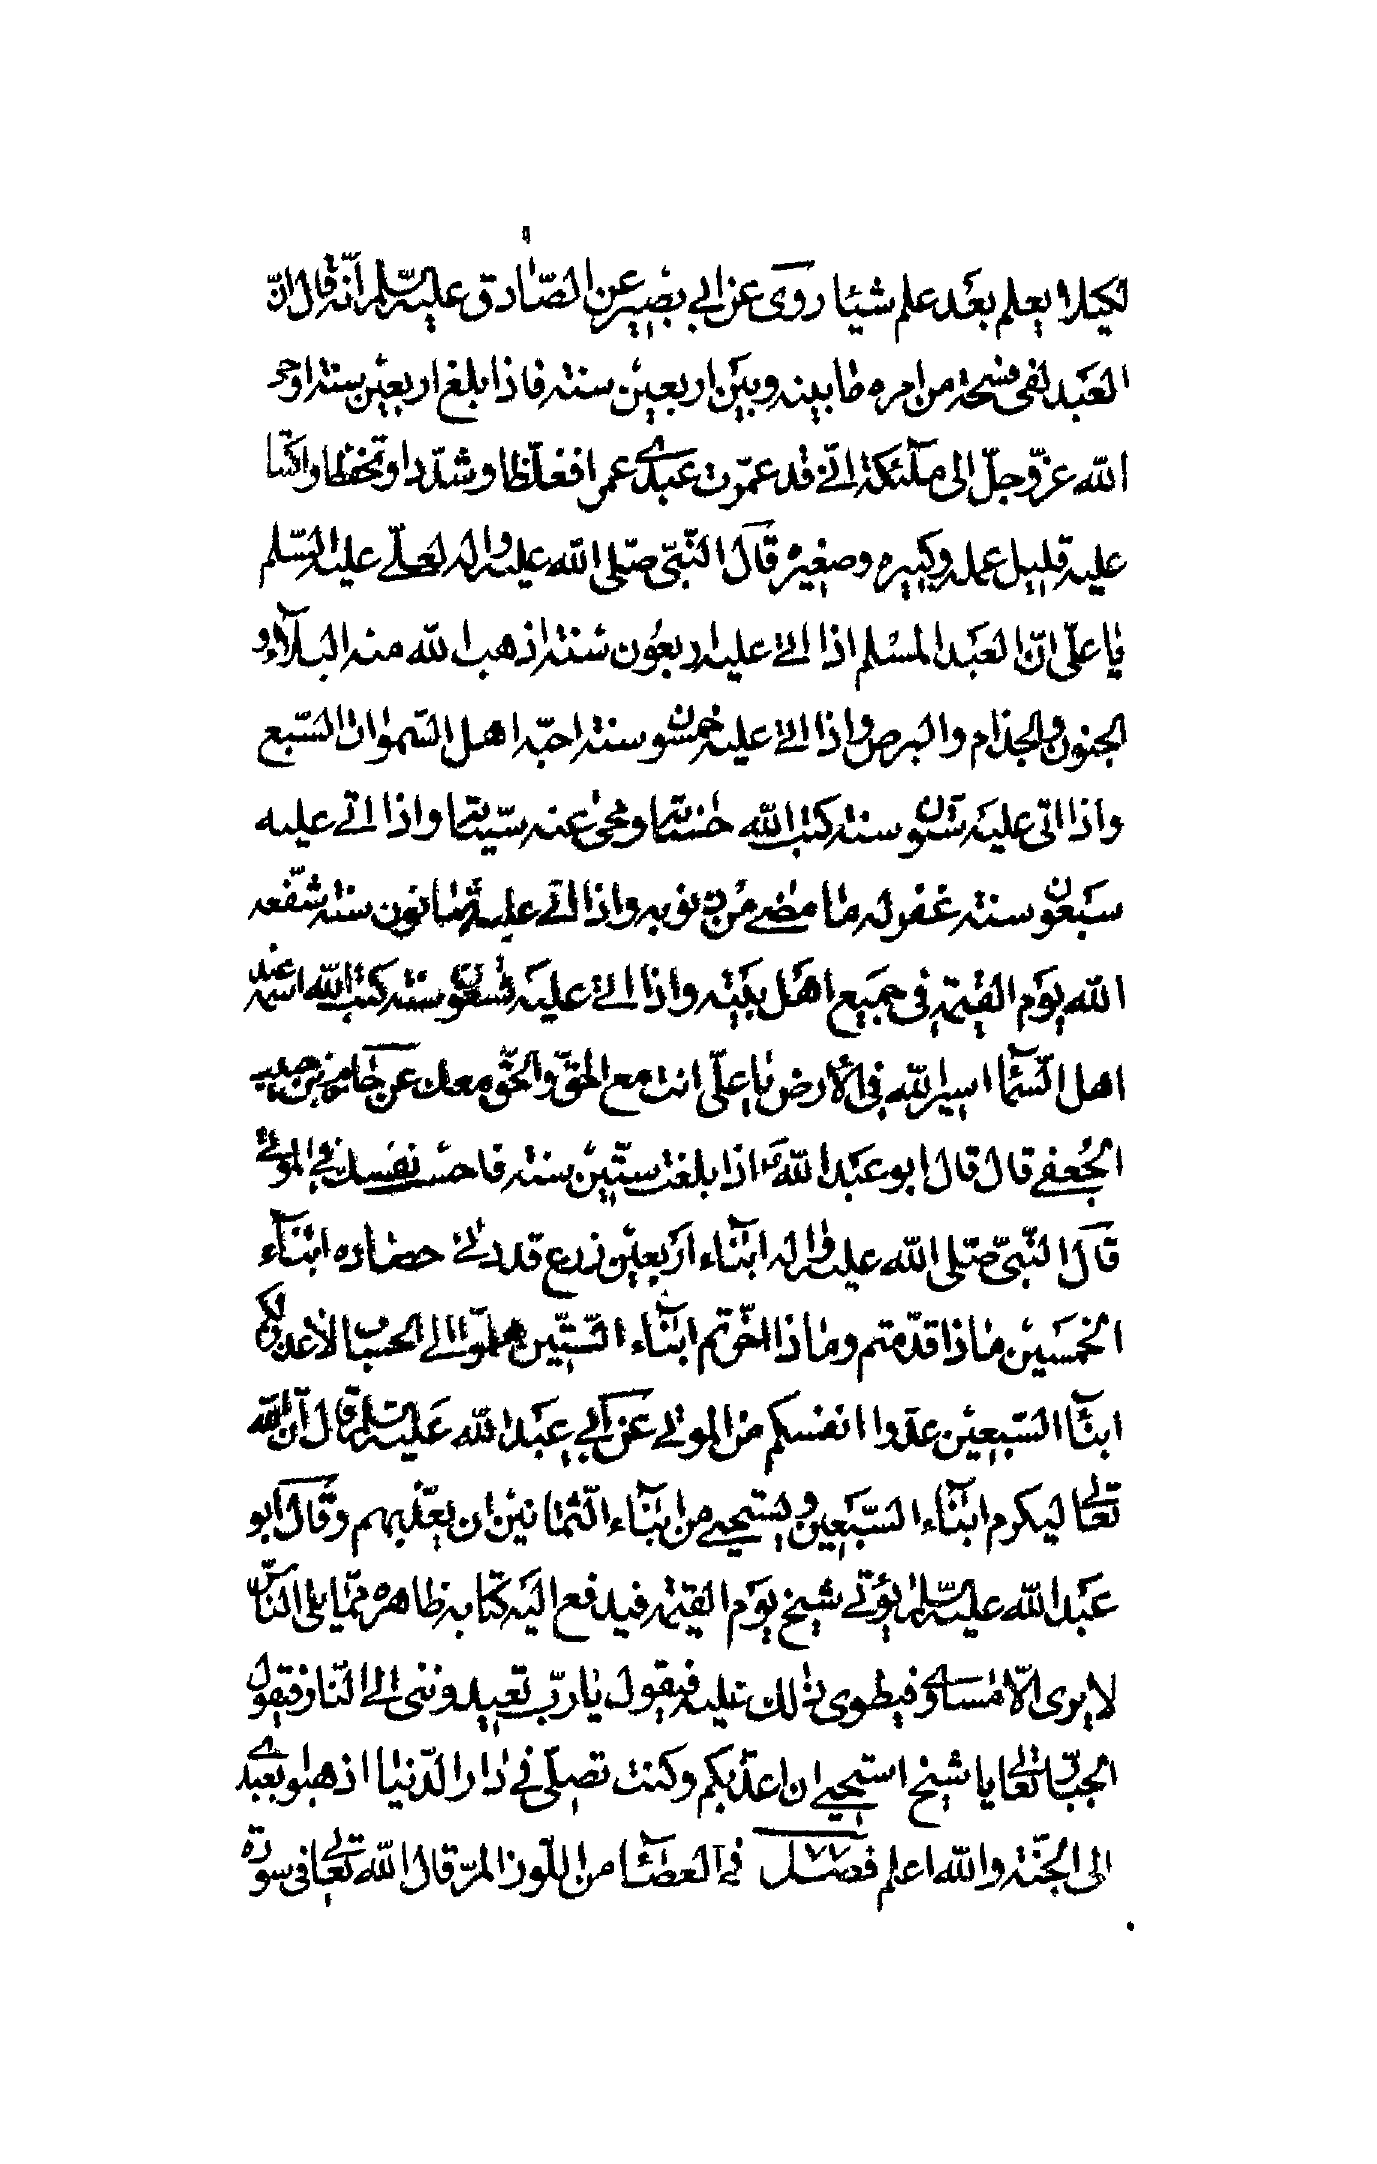 لكيلا يعلم بعد علم شيئا روى عن ابي بصير عن الصّادق عليه السّلم انّه قال انّ
العبد لفى فسحة من امره ما بينه وبين اربعين سنة فاذا بلغ اربعين سنة اوحى
الله عزّ وجلّ الى ملئكته انّى قد عمّرت عبدي عمرا فغلّظا وشدّدا وتحفظا واكتبا
عليه قليل عمله وكبيره وصغيره قال النّبىّ صلّى الله عليه واله لعلى عليه السّلم
يا علىّ انّ العبد المسلم اذا اتى عليه اربعون سنة اذهب الله منه البلاء و
الجنون والجذام والبرص واذا اتى عليه خمسون سنة احبّه اهل السّموات السّبع
واذا اتى عليه ستّون سنة كتب الله حسناته ومحى عنه سيّئاته واذا اتى عليه
سبعون سنة غفر له ما مضى من ذنوبه واذا اتى عليه ثمانون سنة شفّعه
الله يوم القيمة فى جميع اهل بيته واذا اتى عليه تسعون سنة كتب الله اسمه عند
اهل السّماء اسير الله فى الأرض يا علىّ انت مع الحقّ والحقّ معك عن حازم بن حبيب
الجعفى قال قال ابو عبد الله ع اذا بلغت ستّين سنة فاحسب نفسك فى الموتى
قال النّبىّ صلّى الله عليه واله ابناء اربعين زرع قد دنى حصاده ابناء
الخمسين ماذا قدّمتم وماذا اخّرتم ابناء السّتّين هلمّوا الى الحساب لا عذر لكم
ابناء السّبعين عدّوا انفسكم من الموتى عن ابي عبد الله عليه السّلم قال انّ الله
تعالى ليكرم ابناء السّبعين ويستحيى من ابناء الثّمانين ان يعذّبهم وقال ابو
عبد الله عليه السّلم يؤتى شيخ يوم القيمة فيدفع اليه كتابه ظاهره ممّا يلى النّاس
لا يرى الّا مساوى فيطوى ذلك عليه فيقول يا ربّ تعيدوننى الى النّار فيقول
الجبّار تعالى يا شيخ استحيى ان اعذّبكم وكنت تصلّى فى دار الدّنيا اذهبوا بعبدي
الى الجنّة والله اعلم فصل ٧٧ فى العصا من اللّوز المرّ قال الله تعالى فى سورة